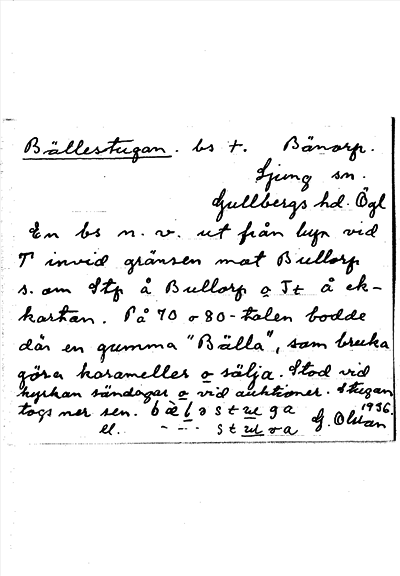 Bällestugan. bs t. Bänorp.
Ljung sn.
Gullbergs hd. Ögl
En bs n. v. ut från byn vid
T invid gränsen mot Bullorp
s. om Stp å Bullorp o Jt å ek-
kartan. På 70 o 80-talen bodde
där en gumma "Bälla", som bruka
göra karameller o sälja. Stod vid
kyrkan söndagar o vid auktioner. Stugan
togs ner sen. bælə stuga 1936.
el. - - - stuoa G. Olsson